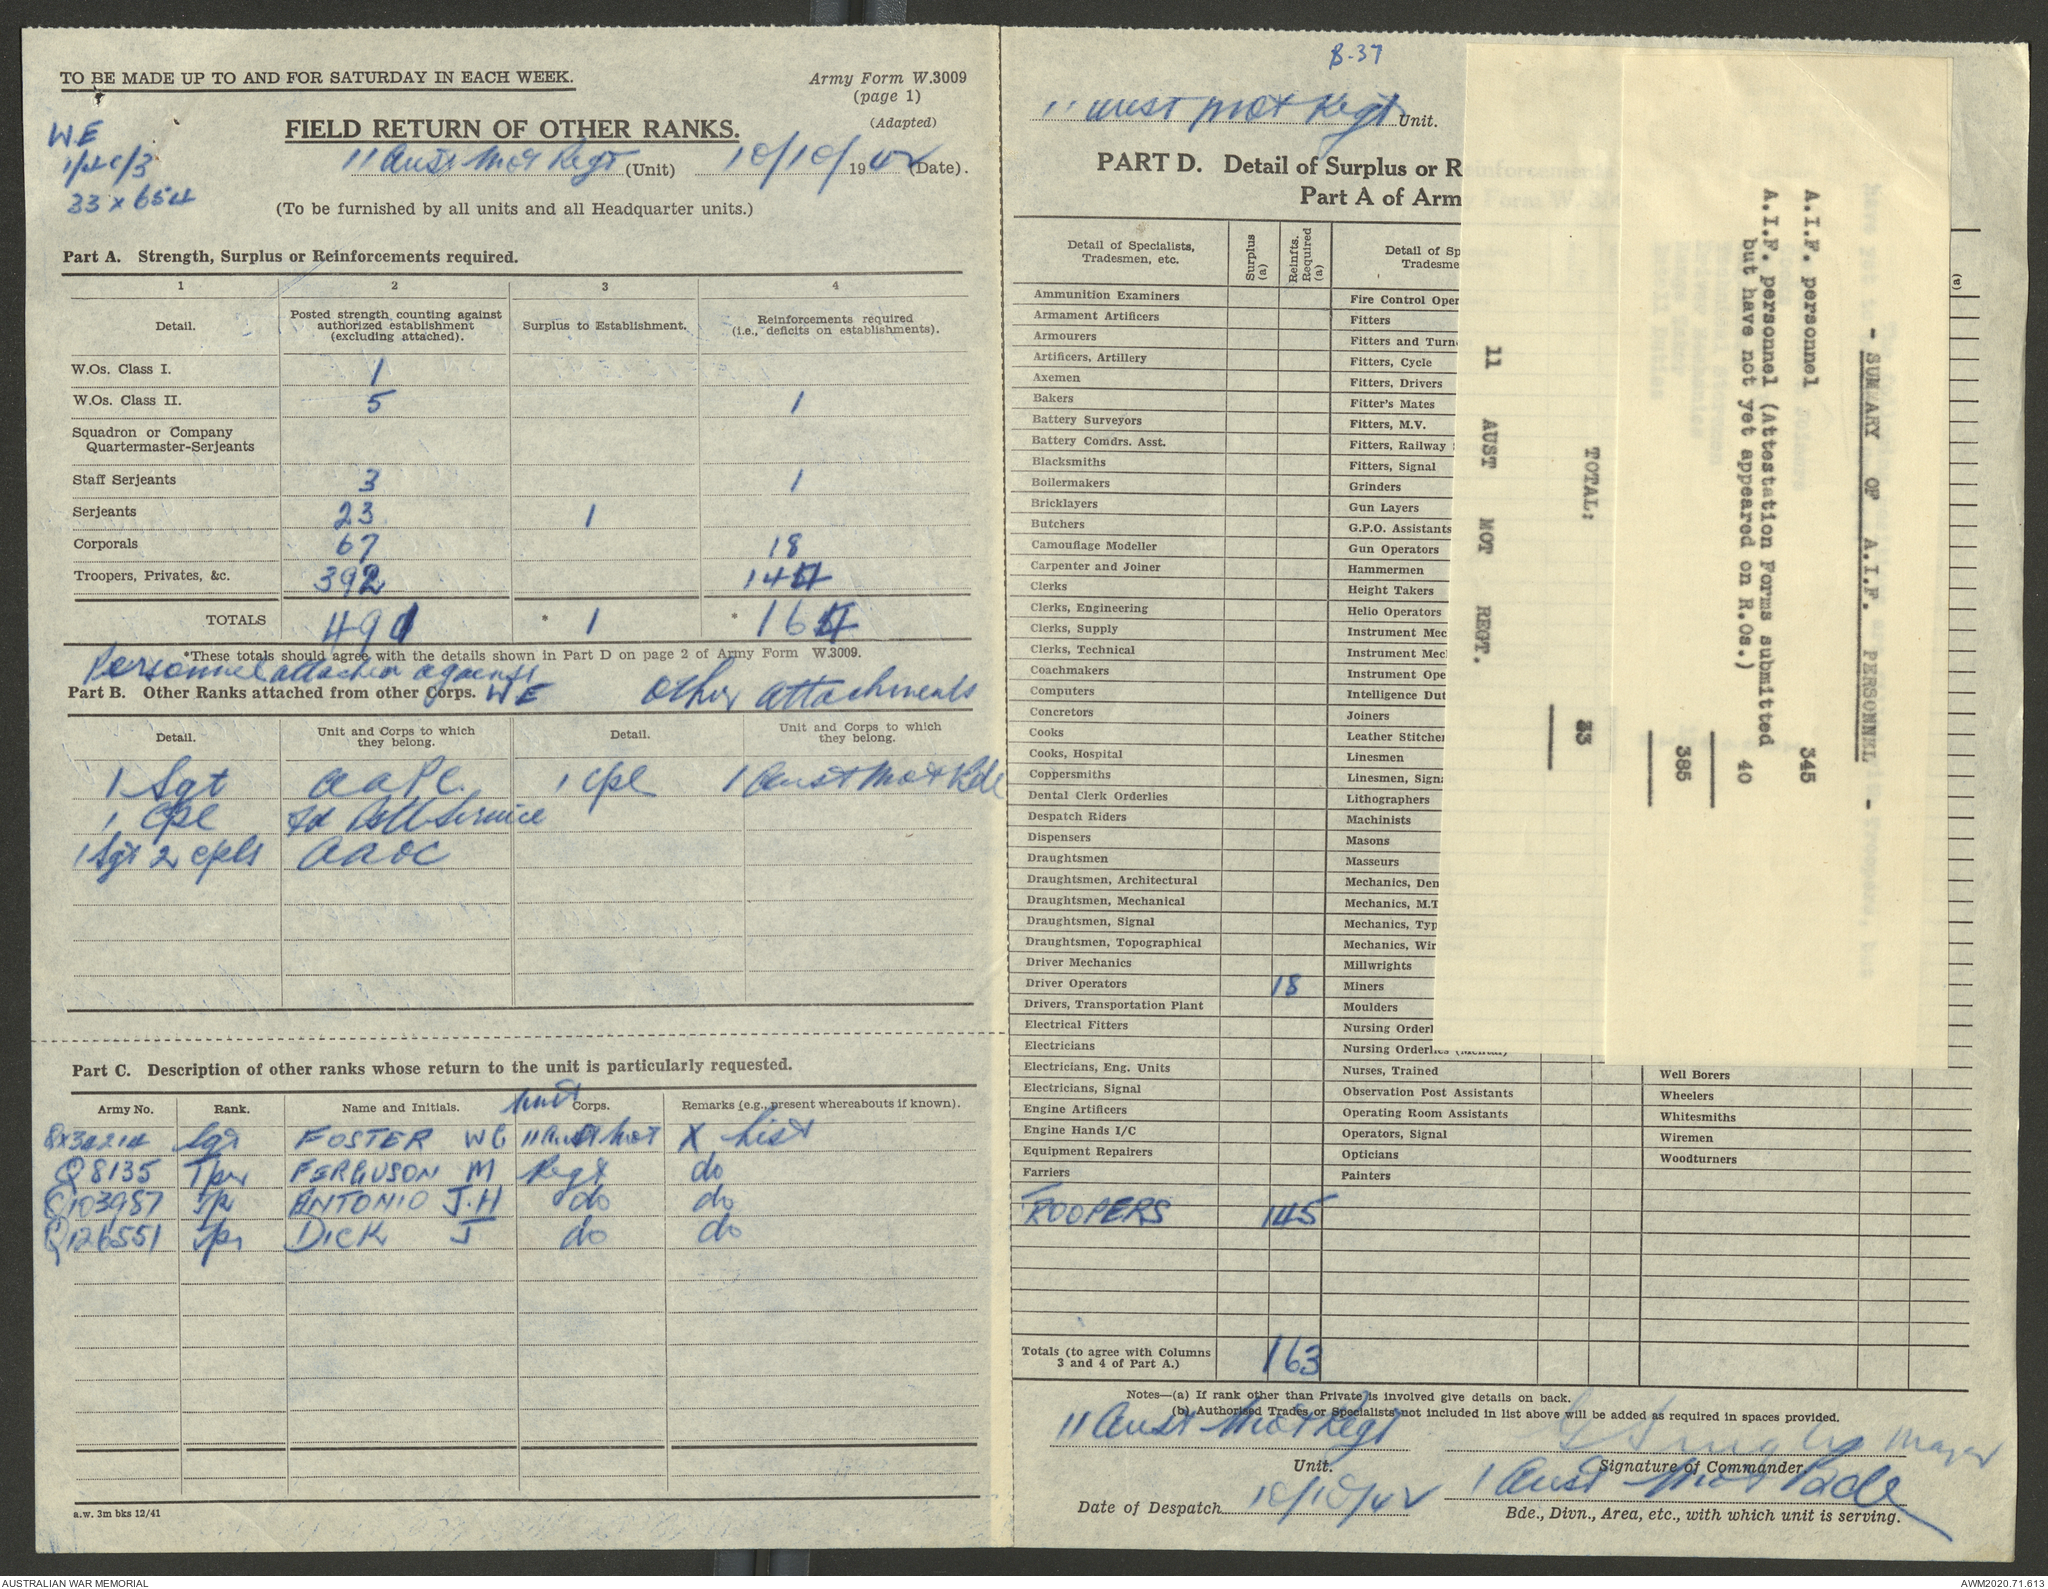 TO BE MADE UP TO AND FOR SATURDAY IN EACH WEEK.
Army Form W.3009
(page 1)
(Adapted)
WE
33 x 654
FIELD RETURN OF OTHER RANKS.
11 Aust Mot Regt (Unit) 10/10/1942 (Date).
(To be furnished by all units and all Headquarter units.)
Part A. Strength, Surplus or Reinforcements required.
1 2 3 4
Detail. Posted strength counting against authorized establishment (excluding attached). Surplus to Establishment. Reinforcements required (i.e., deficits on establishments).
W.Os. Class I. 1
W.Os. Class II. 5 1
Squadron or Company
Quartermaster-Serjeants
Staff Serjeants 3 1
Serjeants 23 1
Corporals 67 18
Troopers, Privates, &c. 392 144
TOTALS 491 * 1 * 164
*These totals should agree with the details shown in Part D on page 2 of Army Form W.3009.
Personnel attached against
WE
Part B. Other Ranks attached from other Corps. Other attachments
Detail. Unit and Corps to which they belong. Detail. Unit and Corps to which they belong.
1 Sgt AAPC. 1 Cpl 1 Aust Mot Bde
1 Cpl Fd Service
1 Sgt 2 Cpls AAOC
Part C. Description of other ranks whose return to the unit is particularly requested.
Unit
Army No. Rank. Name and Initials. Corps. Remarks (e.g., present whereabouts if known).
Sgt FOSTER WC 11 Aust Mot X List
Q8135 Tpr FERGUSON M Regt do
Q103957 Tpr ANTONIO J.H do do
Q126551 Tpr DICK J do do
a.w. 3m bks 12/41
B-37
11 Aust Mot Regt Unit.
PART D. Detail of Surplus or R
Part A of Arm
Detail of Specialists, Tradesmen, etc. Surplus (a) Reinfts. Required (a) Detail of Sp
Tradesme
(a)
Ammunition Examiners Fire Control Oper
Armament Artificers Fitters
Armourers Fitters and Turn
Artificers, Artillery Fitters, Cycle
Axemen Fitters, Drivers
Bakers Fitter's Mates
Battery Surveyors Fitters, M.V.
Battery Comdrs. Asst. Fitters, Railway
Blacksmiths Fitters, Signal
Boilermakers Grinders
Bricklayers Gun Layers
Butchers G.P.O. Assistants
Camouflage Modeller Gun Operators
Carpenter and Joiner Hammermen
Clerks Height Takers
Clerks, Engineering Helio Operators
Clerks, Supply Instrument Mec
Clerks, Technical Instrument Mec
Coachmakers Instrument Ope
Computers Intelligence Dut
Concretors Joiners
Cooks Leather Stitche
Cooks, Hospital Linesmen
Coppersmiths Linesmen, Sign
Dental Clerk Orderlies Lithographers
Despatch Riders Machinists
Dispensers Masons
Draughtsmen Masseurs
Draughtsmen, Architectural Mechanics, Den
Draughtsmen, Mechanical Mechanics, M.T
Draughtsmen, Signal Mechanics, Typ
Draughtsmen, Topographical Mechanics, Wir
Driver Mechanics Millwrights
Driver Operators 18 Miners
Drivers, Transportation Plant Moulders
Electrical Fitters Nursing Orderl
Electricians Nursing Orderlies (Mental)
Electricians, Eng. Units Nurses, Trained Well Borers
Electricians, Signal Observation Post Assistants Wheelers
Engine Artificers Operating Room Assistants Whitesmiths
Engine Hands I/C Operators, Signal Wiremen
Equipment Repairers Opticians Woodturners
Farriers Painters
TROOPERS 145
Totals (to agree with Columns 3 and 4 of Part A.) 163
Notes—(a) If rank other than Private is involved give details on back.
(b) Authorised Trades or Specialists not included in list above will be added as required in spaces provided.
11 Aust Mot Regt Major
Unit. Signature of Commander.
Date of Despatch 10/10/42 1 Aust Mot Bde
Bde., Divn., Area, etc., with which unit is serving.
- SUMMARY OF A.I.F. PERSONNEL -
A.I.F. personnel 345
A.I.F. personnel (Attestation Forms submitted
but have not yet appeared on R.Os.) 40
385
TOTAL: 33
11 AUST MOT REGT.
AUSTRALIAN WAR MEMORIAL
AWM2020.71.613